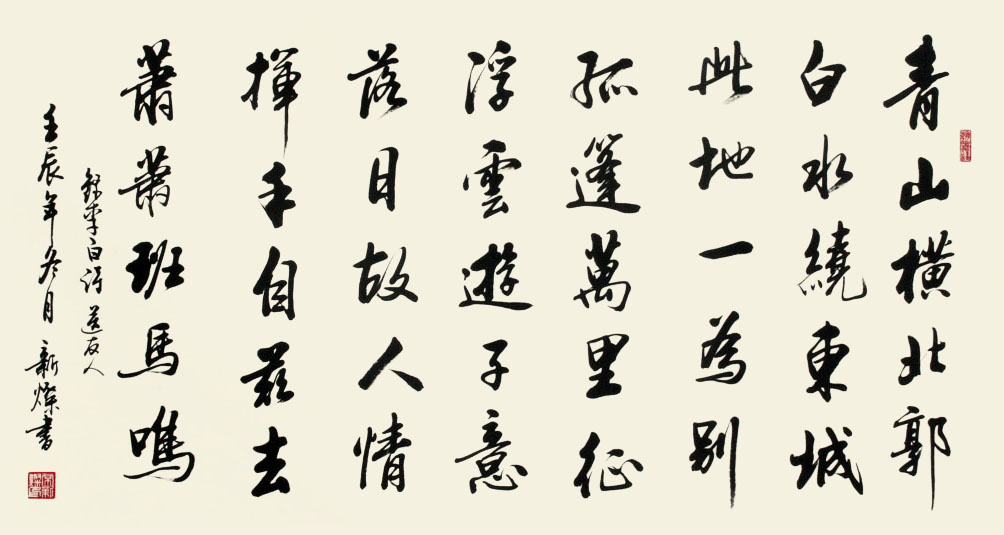 青山橫北郭
白水繞東城
此地一為別
孤蓬萬里征
浮雲遊子意
落日故人情
揮手自茲去
蕭蕭班馬鳴
錄李白詩送友人
壬辰年冬月新燦書